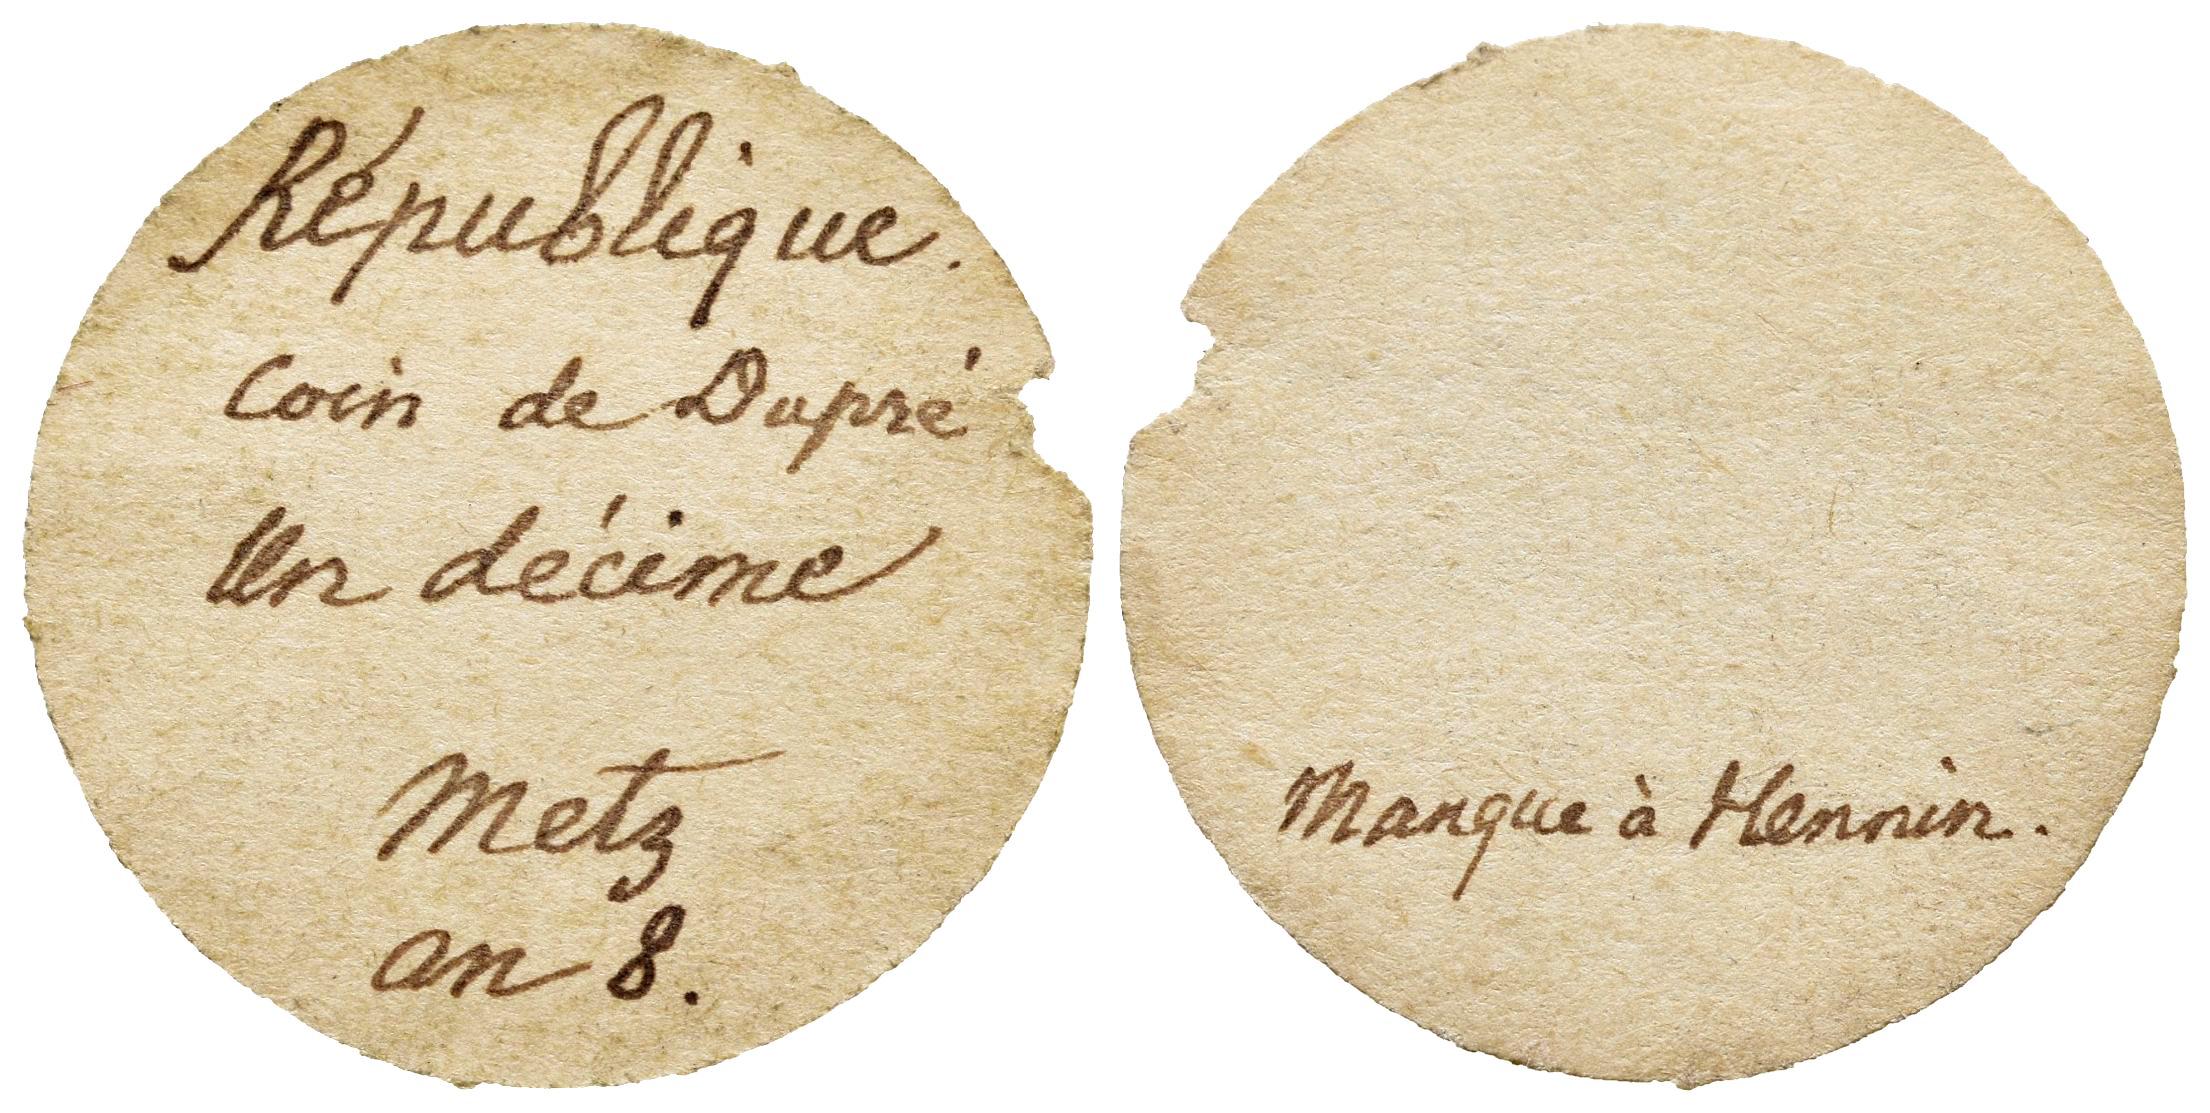 République.
Coin de Dupré
Un décime
Metz
an 8.
Manque à Hennin.